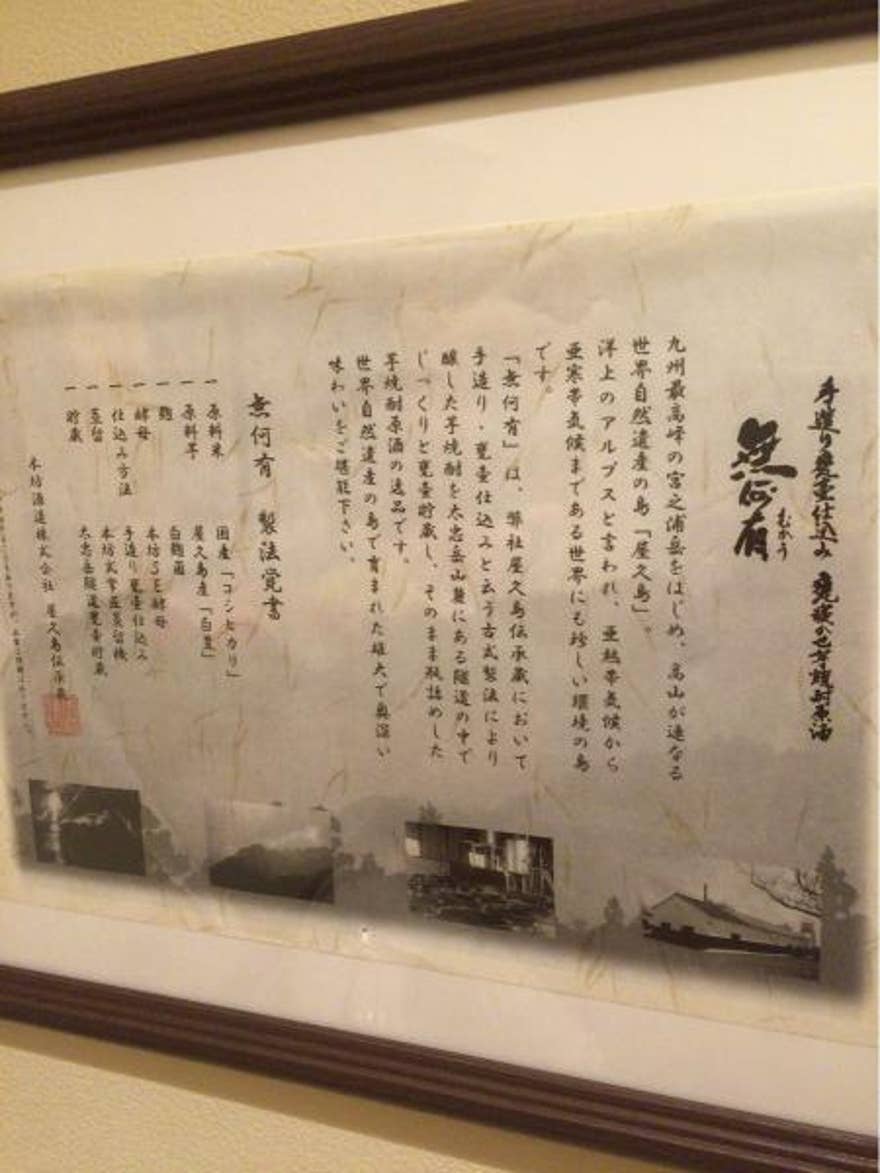 手造り甕壺仕込み 甕貯蔵芋焼酎原酒
無何有
むかう
九州最高峰の宮之浦岳をはじめ、高山が連なる
世界自然遺産の島「屋久島」。
洋上のアルプスと言われ、亜熱帯気候から
亜寒帯気候まである世界にも珍しい環境の島
です。
「無何有」は、弊社屋久島伝承蔵において
手造り・甕壺仕込みと云う古式製法により
醸した芋焼酎を太忠岳山麓にある隧道の中で
じっくりと甕壺貯蔵し、そのまま瓶詰めした
芋焼酎原酒の逸品です。
世界自然遺産の島で育まれた雄大で奥深い
味わいをご堪能下さい。
無何有 製法覚書
一 原料米 国産「コシヒカリ」
一 原料芋 屋久島産「白豊」
一 麹 白麹菌
一 酵母 本坊SE酵母
一 仕込み方法 手造り甕壺仕込み
一 蒸留 本坊式常圧蒸留機
一 貯蔵 太忠岳隧道甕壺貯蔵
本坊酒造株式会社 屋久島伝承蔵